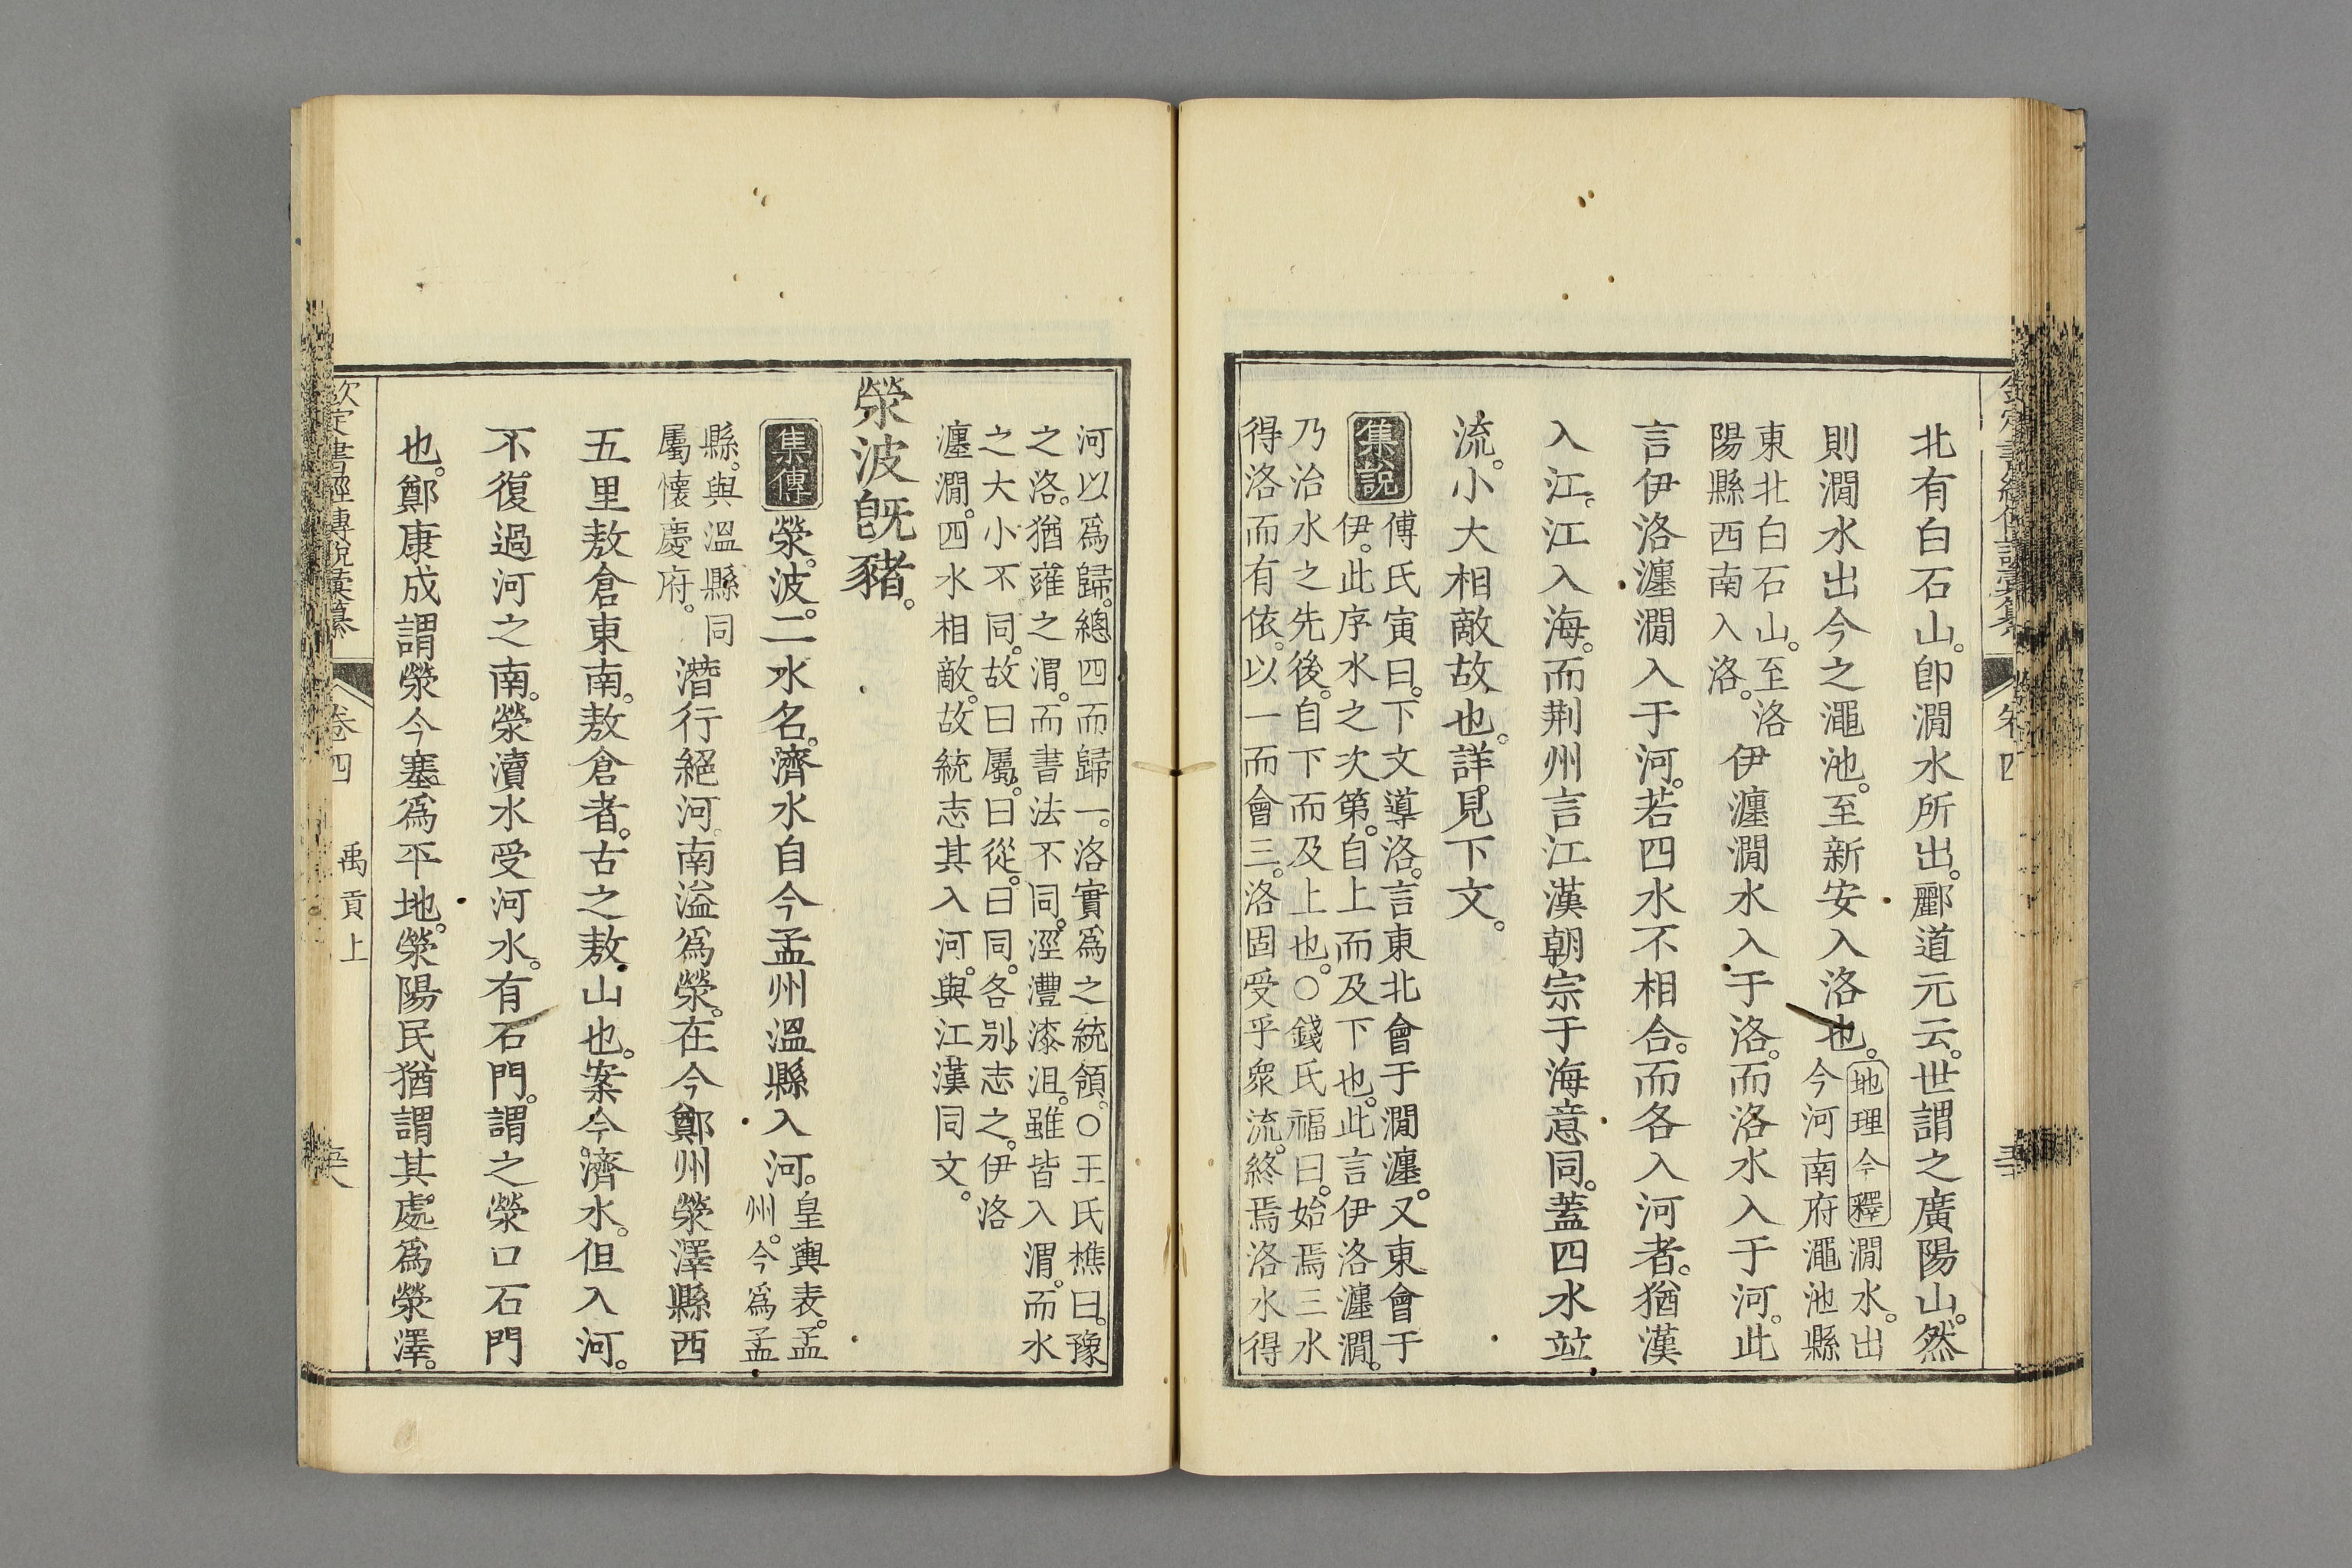 北有白石山。卽澗水所出。酈道元云。世謂之廣陽山。然
則澗水出今之澠池。至新安入洛也。
地理今釋澗水。出
今河南府澠池縣
東北白石山。至洛
陽縣西南入洛。
伊瀍澗水入于洛。而洛水入于河。此
言伊洛瀍澗入于河。若四水不相合。而各入河者。猶漢
入江。江入海。而荆州言江漢朝宗于海意同。蓋四水竝
流。小大相敵故也。詳見下文。
集說
傅氏寅曰。下文導洛。言東北會于澗瀍。又東會于
伊。此序水之次第。自上而及下也。此言伊洛瀍澗。
乃治水之先後。自下而及上也。○錢氏福曰。始焉三水
得洛而有依。以一而會三。洛固受乎衆流。終焉洛水得
河以爲歸。總四而歸一。洛實爲之統領。○王氏樵曰。豫
之洛。猶雍之渭。而書法不同。涇灃漆沮。雖皆入渭。而水
之大小不同。故曰屬。曰從。曰同。各别志之。伊洛
瀍澗。四水相敵。故統志其入河。與江漢同文。
滎波旣豬。
集傳
滎。波。二水名。濟水自今孟州溫縣入河。
皇輿表。孟
州。今爲孟
縣。與溫縣同
屬懷慶府。
潛行絕河。南溢爲滎。在今鄭州滎澤縣西
五里敖倉東南。敖倉者。古之敖山也。案今濟水。但入河。
不復過河之南。滎瀆水受河水。有石門。謂之滎口石門
也。鄭康成謂滎今塞爲平地。滎陽民猶謂其處爲滎澤。
欽定書經傳說彙纂
卷四
禹貢上